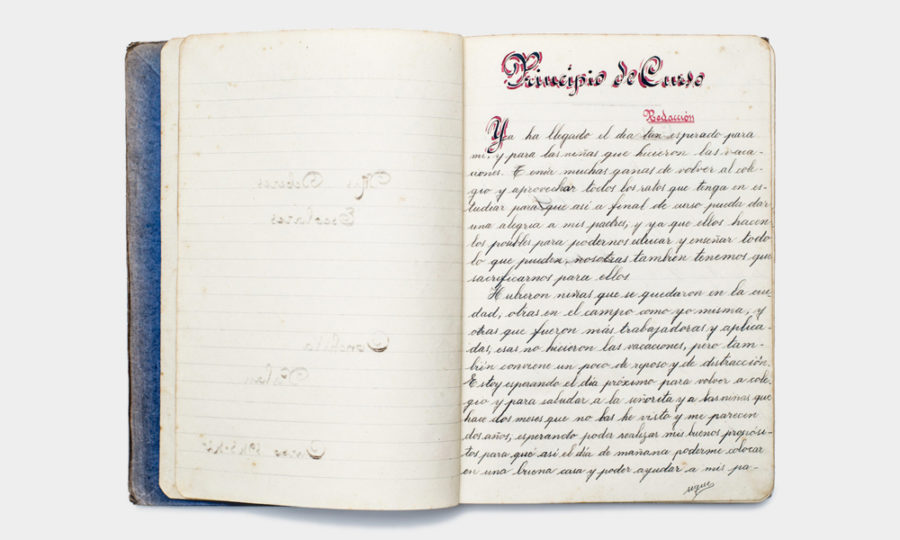 Mis Deberes
Escolares
Conchita
Curso
Principio de Curso
Redacción
Ya ha llegado el día tan esperado para
mí, y para las niñas que hicieron las vaca-
ciones. Tenía muchas ganas de volver al cole-
gio y aprovechar todos los ratos que tenga en es-
tudiar para que así a final de curso pueda dar
una alegria a mis padres, y ya que ellos hacen
los posibles para podernos educar y enseñar todo
lo que pueden, nosotras también tenemos que
sacrificarnos para ellos
Hubieron niñas que se quedaron en la ciu
dad, otras en el campo como yo misma, y
otras que fueron más trabajadoras y aplica-
das, esas no hicieron las vacaciones, pero tam-
bién conviene un poco de reposo y de distracción.
Estoy esperando el día próximo para volver a cole-
gio y para saludar a la señorita y a las niñas que
hace dos meses que no las he visto y me parecen
dos años, esperando poder realizar mis buenos propósi-
tos para qué así el día de mañana poderme colocar
en una buena casa y poder ayudar a mis pa-
sigue